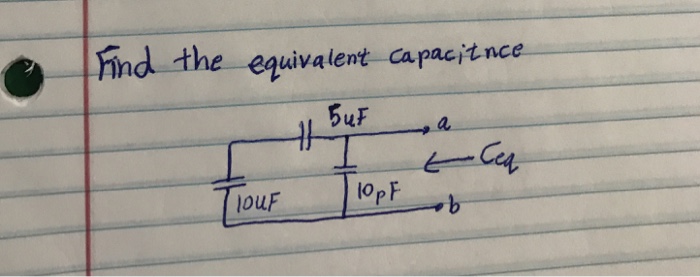 Find the equivalent capacitnce
5uF
a
Ceq
10uF
10pF
b